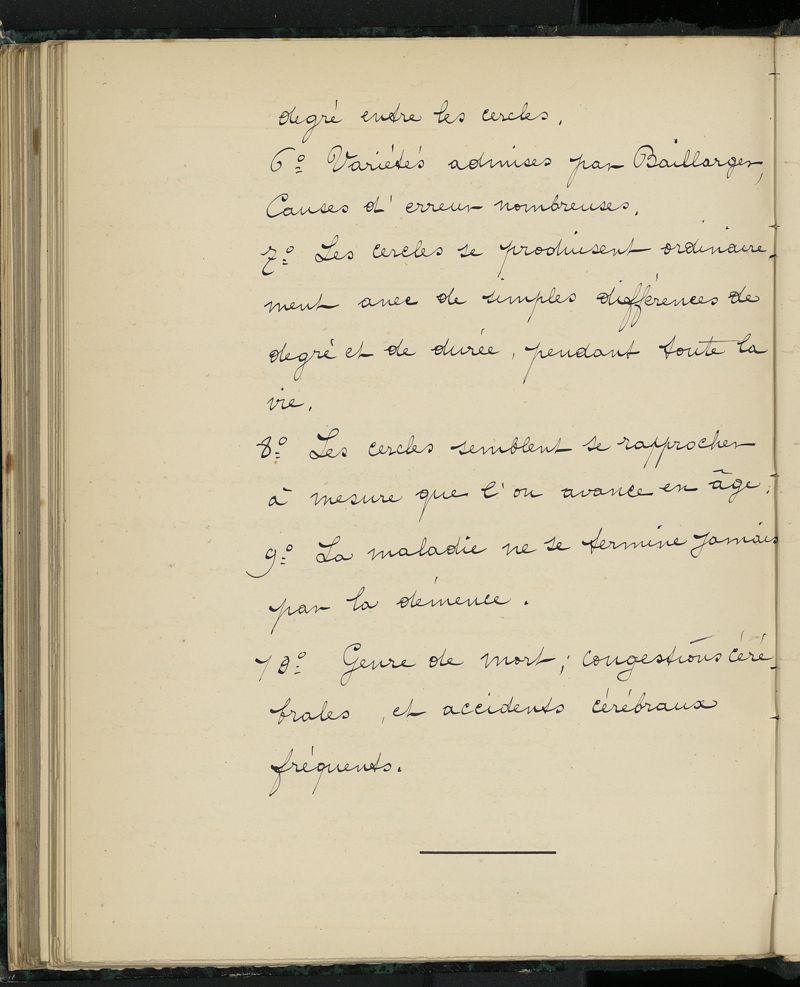 degré entre les cercles.
6º Variétés admises par Baillarger,
Causes d'erreur nombreuses.
7º Les cercles se produisent ordinaire-
ment avec de simples différences de
degré et de durée, pendant toute la
vie.
8º Les cercles semblent se rapprocher
à mesure que l'on avance en âge.
9º La maladie ne se termine jamais
par la démence.
10º Genre de mort ; congestions céré-
brales, et accidents cérébraux
fréquents.